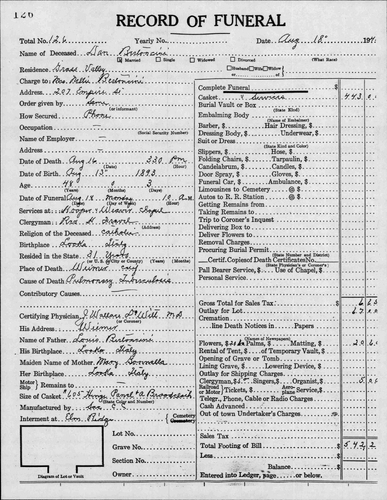 126
RECORD OF FUNERAL
Total No. 126 Yearly No. Date Aug 18th 194
Name of Deceased Dan Bertoncini
Married Single Widowed Divorced
What Race
Residence Grass Valley Husband Wife Widow or
Charge to Mrs. Nellie Bertoncini
Address 207 Empire St
Order given by (or informant)
How Secured Phone
Occupation — (Social Security Number)
Name of Employer —
Address —
Date of Death Aug 16 2 30 P.m.
(Date) (Hour)
Date of Birth Aug 13th 1893
Age 48 0 3
(Years) (Months) (Days)
Date of Funeral Aug 18 Monday 10 a.m.
(Date) (Day of Week) (Hour)
Services at Hooper & Weaver Chapel
Clergyman Rev.
Religion of the Deceased Catholic
Birthplace Italy
Resided in the State 31 Years
(or U. S. or City or County) (Years) (Months)
Place of Death Weimar
Cause of Death Pulmonary Tuberculosis
Contributory Causes
Certifying Physician J Wallace DeWitt M.D.
His Address Weimar
Name of Father Louis Bertoncini
His Birthplace Italy
Maiden Name of Mother Mary
Her Birthplace Italy
Motor Ship Remains to
Size of Casket
(State Color and Number)
Manufactured by
Interment at Elm Ridge Cemetery
Lot No.
Grave No.
Section No.
Owner
Diagram of Lot or Vault
Complete Funeral $
Casket & Services 443
Burial Vault or Box
(State Kind)
Embalming Body
(Name of Embalmer)
Barber, $ Hair Dressing, $
Dressing Body, $ Underwear, $
Suit or Dress
(State Kind and Color)
Slippers, $ Hose, $
Folding Chairs, $ Tarpaulin, $
Candelabrum, $ Candles, $
Door Spray, $ Gloves, $
Funeral Car, $ Ambulance, $
Limousines to Cemetery @ $
Autos to R. R. Station @ $
Getting Remains from
Taking Remains to
Trip to Coroner's Inquest
Delivering Box to
Deliver Flowers to
Removal Charges
Procuring Burial Permit
(State Number and District)
Certif. Copies of Death Certificates No.
(State Physician's or Coroner's)
Pall Bearer Service, $ Use of Chapel, $
Personal Service
Gross Total for Sales Tax $
Outlay for Lot
Cremation
line Death Notices in Papers
(Names of Newspapers)
Flowers, $ Palms, $ Matting, $
Rental of Tent, $ of Temporary Vault, $
Opening of Grave or Tomb
Lining Grave, $ Lowering Device, $
Outlay for Shipping Charges
Clergyman, $ Singers, $ Organist, $ 5
Railroad Aero or Motor Tickets, $ Aero Plane Service
Telegr., Phone, Cable or Radio Charges
Cash Advanced
Out of town Undertaker's Charge
Sales Tax
Total Footing of Bill $ 542
Less
Balance $
Entered into Ledger, page or below.